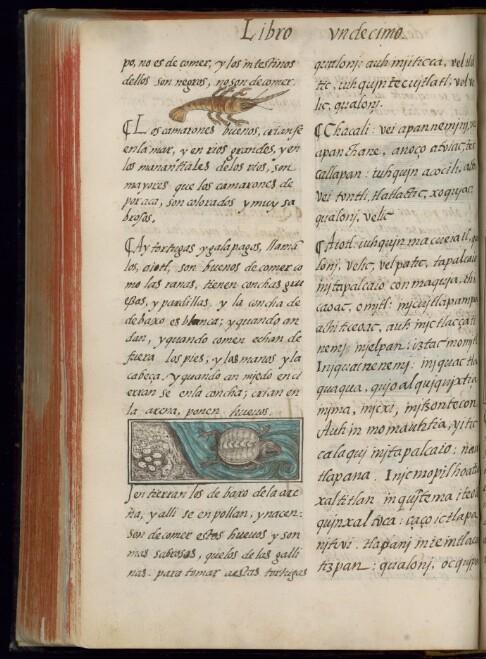 Libro vndecimo.
po, no es de comer, y los intestinos
dellos son negros, no son de comer.
¶Los camarones buenos, crianse
en la mar, y en rios grandes, y en
los manantiales de los rios, son
mayores que los camarones de
por aca, son colorados y muy sa
brosos.
¶Ay tortugas y galapagos, llama
los, aiotl, son buenos de comer co
mo las ranas, tienen conchas grue
ssas, y pardillas, y la concha de
debaxo es blanca; y quando an
dan, y quando comen echan de
fuera los pies, y las manos y la
cabeça, y quando an miedo enci
erran se en la concha; crian en
la arena, ponen hueuos.
y entierran los debaxo dela are
na, y alli se enpollan, y nacen:
son de comer estos hueuos y son
mas sabrosos, quelos de las galli
nas. para tomar aestas tortugas
qualonj: auh mjticeca, vel
tic, iuhqujn tecujtlatl, vel ve
lic, qualonj.
¶Chacali: vei apan nemjnj,
apan chane, anoço atoiac,
callapan: iuhqujn acocili,
vei tontli, tlatlactic, xoqujac
qualonj, velic
¶Aiotl: iuhqujn ma cueiatl,
lonj, velic, velpatic, tapalcaio
injtapalcaio conmaquja,
caoac, omjtl: injcujtlapampa
achiticeoac, auh injctlaçatl
nemj injelpan: iztac
Injquac nenemj: injquac tla
quaqua, qujoalqujqujxtia
injma, injcxi, injtzontecon
Auh in momauhtia,
calaquj injtapalcaio:
tlapana. Injc mopilhoatia
xaltitlan in qujtema
qujnxaltoca: çaço ictlapa
njtivi. tlapanj inteintlaca
tizpan: qualonj,